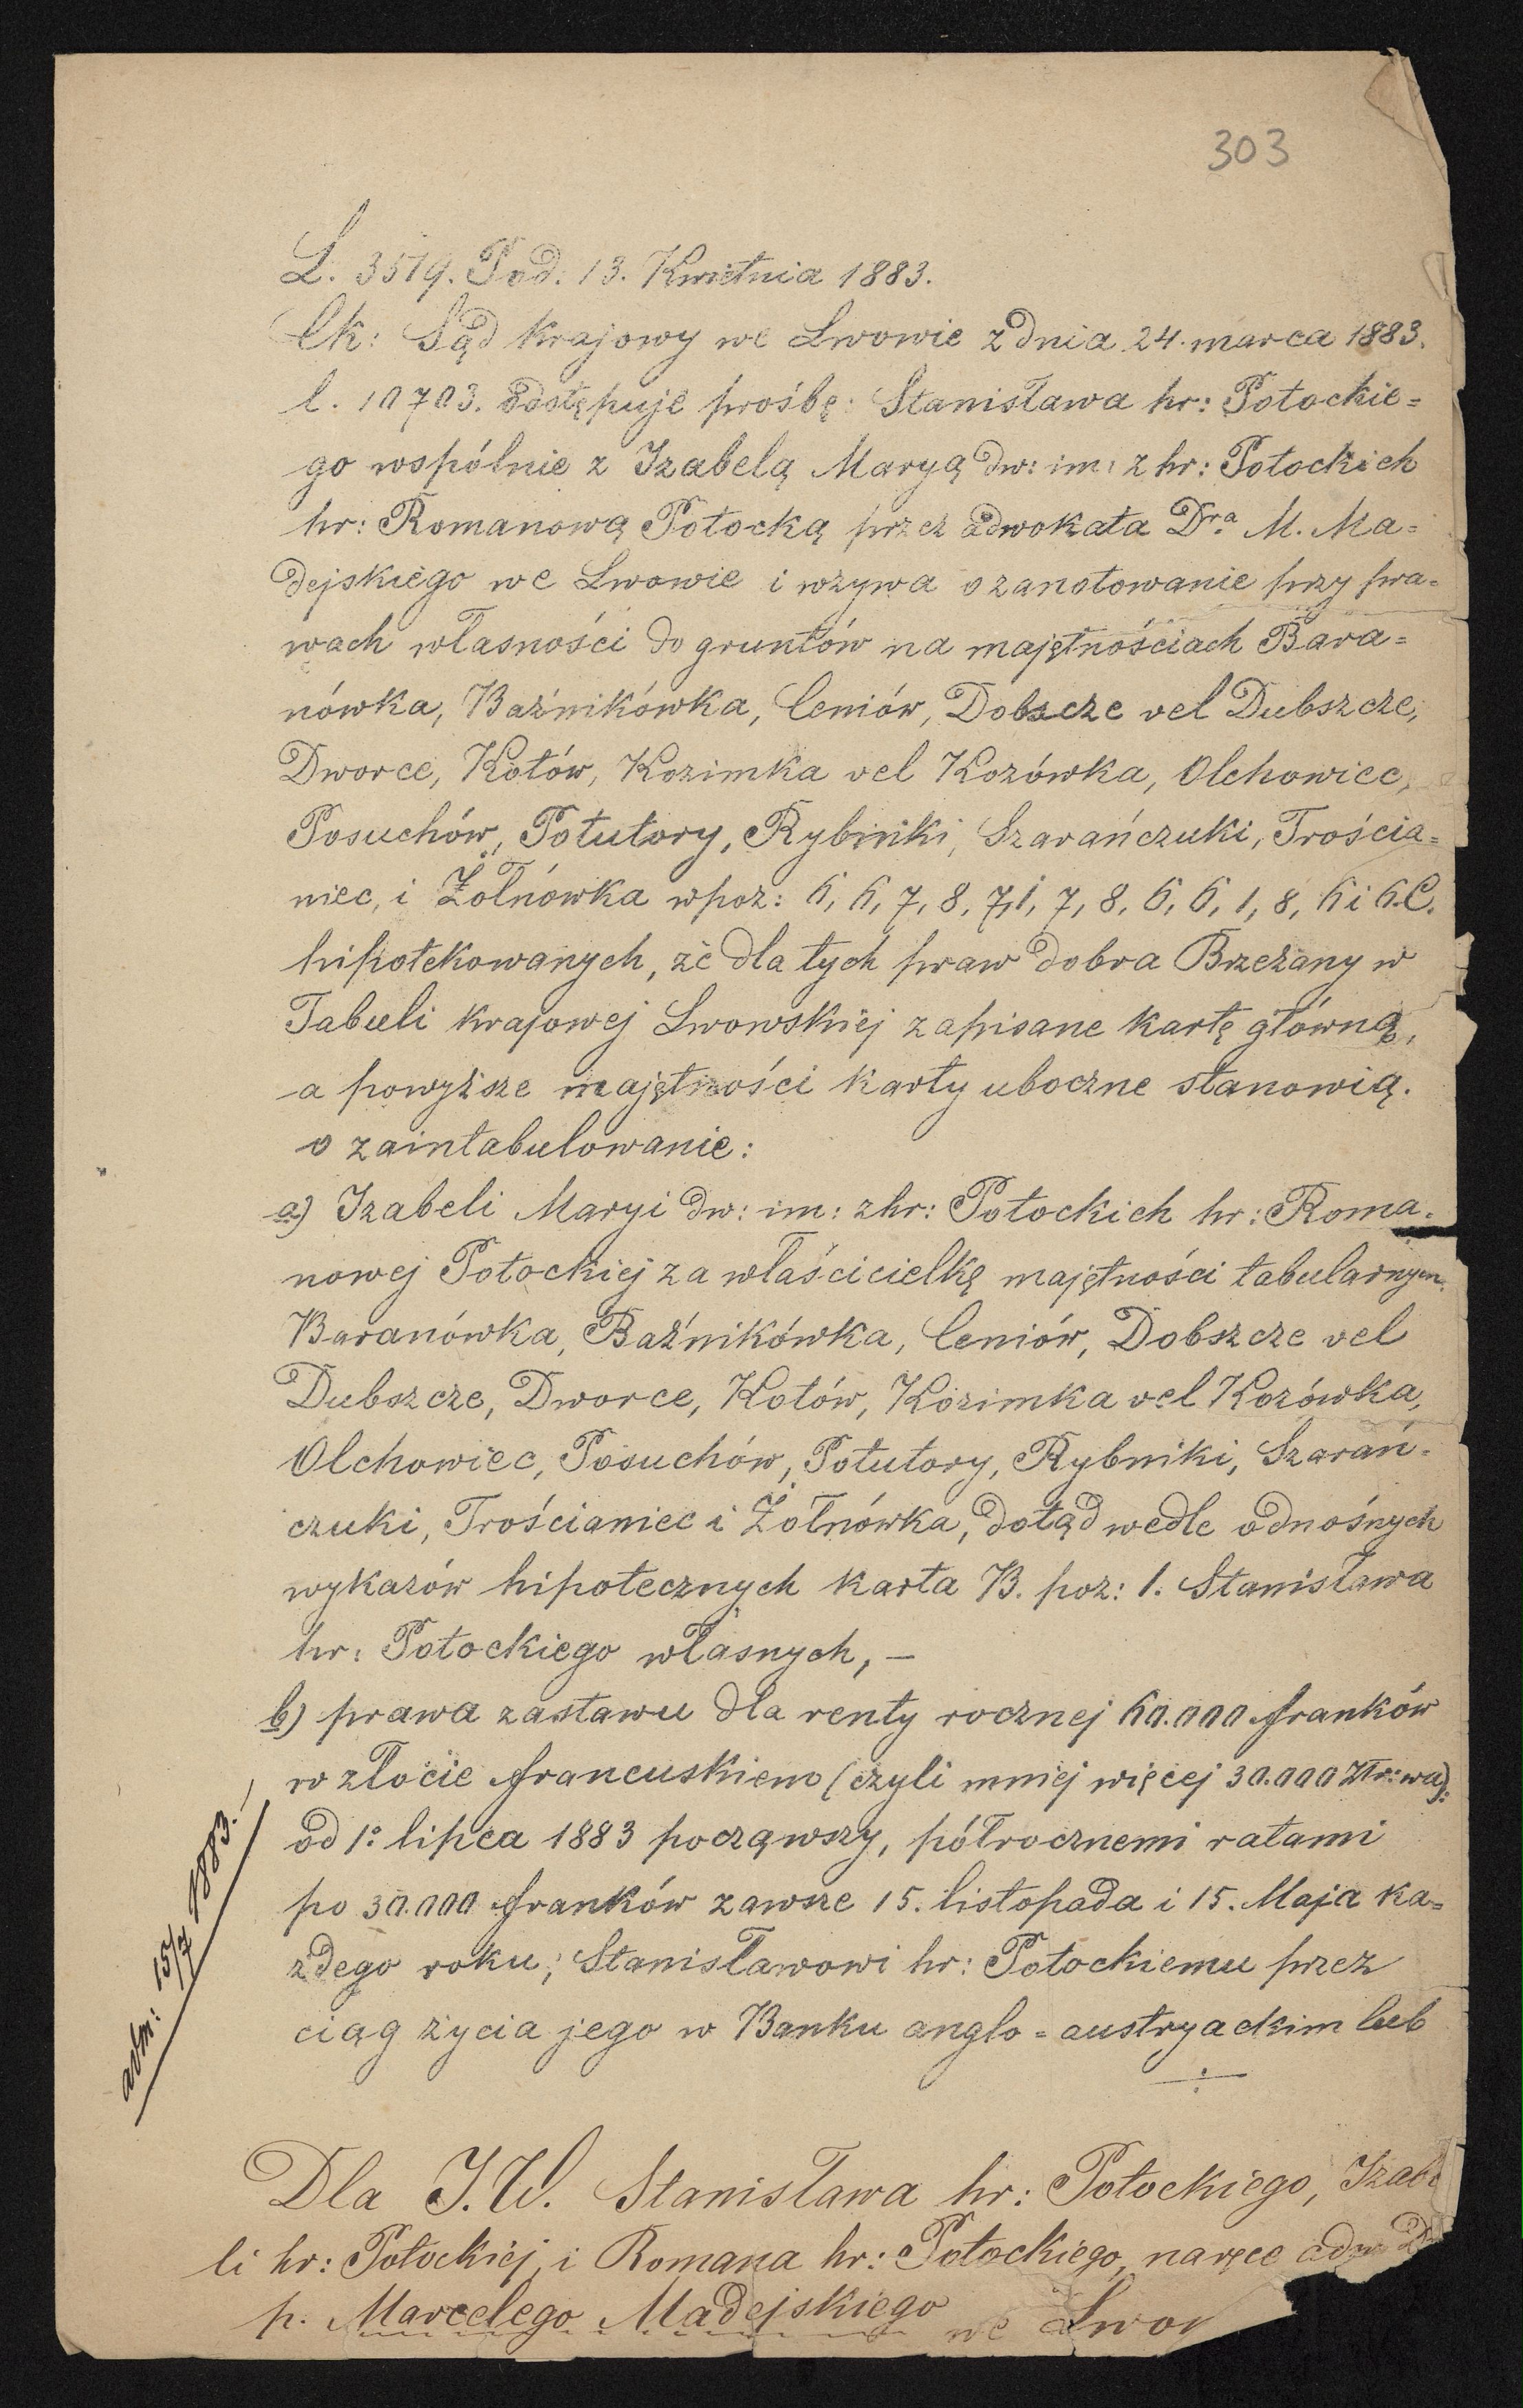 303
L. 3519. Pod. 13. Kwietnia 1883.
Ck: Sąd krajowy we Lwowie z dnia 24. marca 1883.
l. 10703. odstępuje prośbę: Stanisława hr: Potockie=
go wspólnie z Izabelą Maryą dw: im: z hr: Potockich
hr: Romanową Potocką przez adwokata Dra M. Ma=
dejskiego we Lwowie i wzywa o zanotowanie przy pra=
wach własności do gruntów na majętnościach Bara=
nówka, Baźnikówka, Ceniów, Dobszcze vel Dubszcze,
Dworce, Kotów, Kozimka vel Kozówka, Olchowiec,
Posuchów, Potutory, Rybniki, Szarańczuki, Trościa=
niec, i Żółnówka w poz: 6, 6, 7, 8, 7, 1, 7, 8, 6, 6, 1, 8, 6 i 6. C.
hipotekowanych, że dla tych praw dobra Brzeżany w
Tabuli krajowej Lwowskiej zapisane kartę główną,
a powyższe majętności karty uboczne stanowią.
o zaintabulowanie:
a) Izabeli Maryi dw: im: z hr: Potockich hr: Roma=
nowej Potockiej za właścicielkę majętności tabularnych
Baranówka, Baźnikówka, Ceniów, Dobszcze vel
Dubszcze, Dworce, Kotów, Kozimka vel Kozówka,
Olchowiec, Posuchów, Potutory, Rybniki, Szarań=
czuki, Trościaniec i Żołnówka, dotąd wedle odnośnych
wykazów hipotecznych karta B. poz: 1. Stanisława
hr: Potockiego własnych, —
b) prawa zastawu dla renty rocznej 60.000 franków
w złocie francuskiem (czyli mniej więcej 30.000 Złr: wa):
od 1o lipca 1883 począwszy, półrocznemi ratami
po 30.000 franków zawsze 15. listopada i 15. Maja ka=
żdego roku; Stanisławowi hr: Potockiemu przez
ciąg życia jego w Banku anglo=austryackim lub
15/7 1883.
Dla J.W. Stanisława hr: Potockiego, Izabe
li hr: Potockiej, i Romana hr: Potockiego, na ręce adw.
p. Marcelego Madejskiego we Lwow